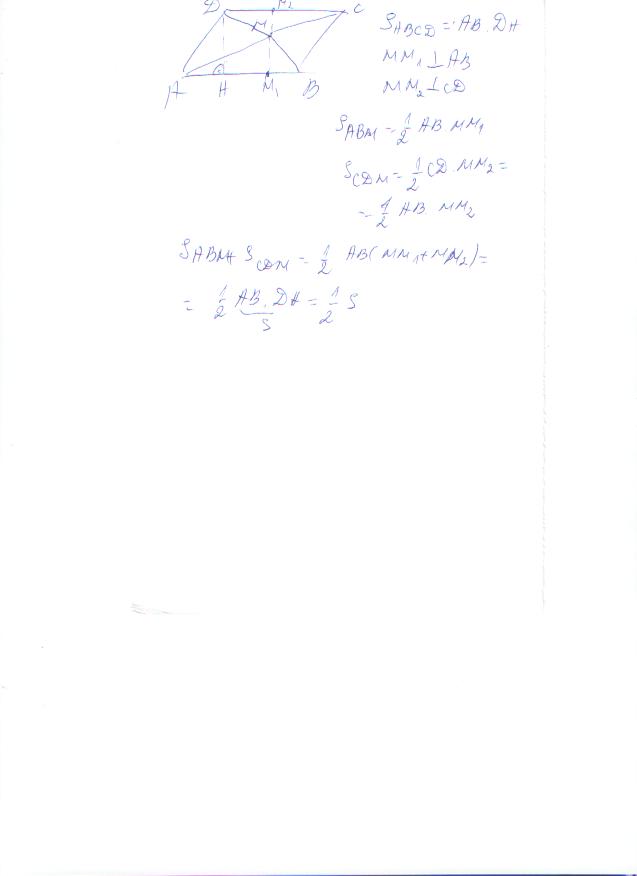 D M₂ C
M
A H M₁ B
S_ABCD = AB . DH
MM₁ ⊥ AB
MM₂ ⊥ CD
S_ABM = 1/2 AB . MM₁
S_CDM = 1/2 CD . MM₂ =
= 1/2 AB MM₂
S_ABM + S_CDM = 1/2 AB(MM₁ + MM₂) =
= 1/2 AB . DH = 1/2 S
S